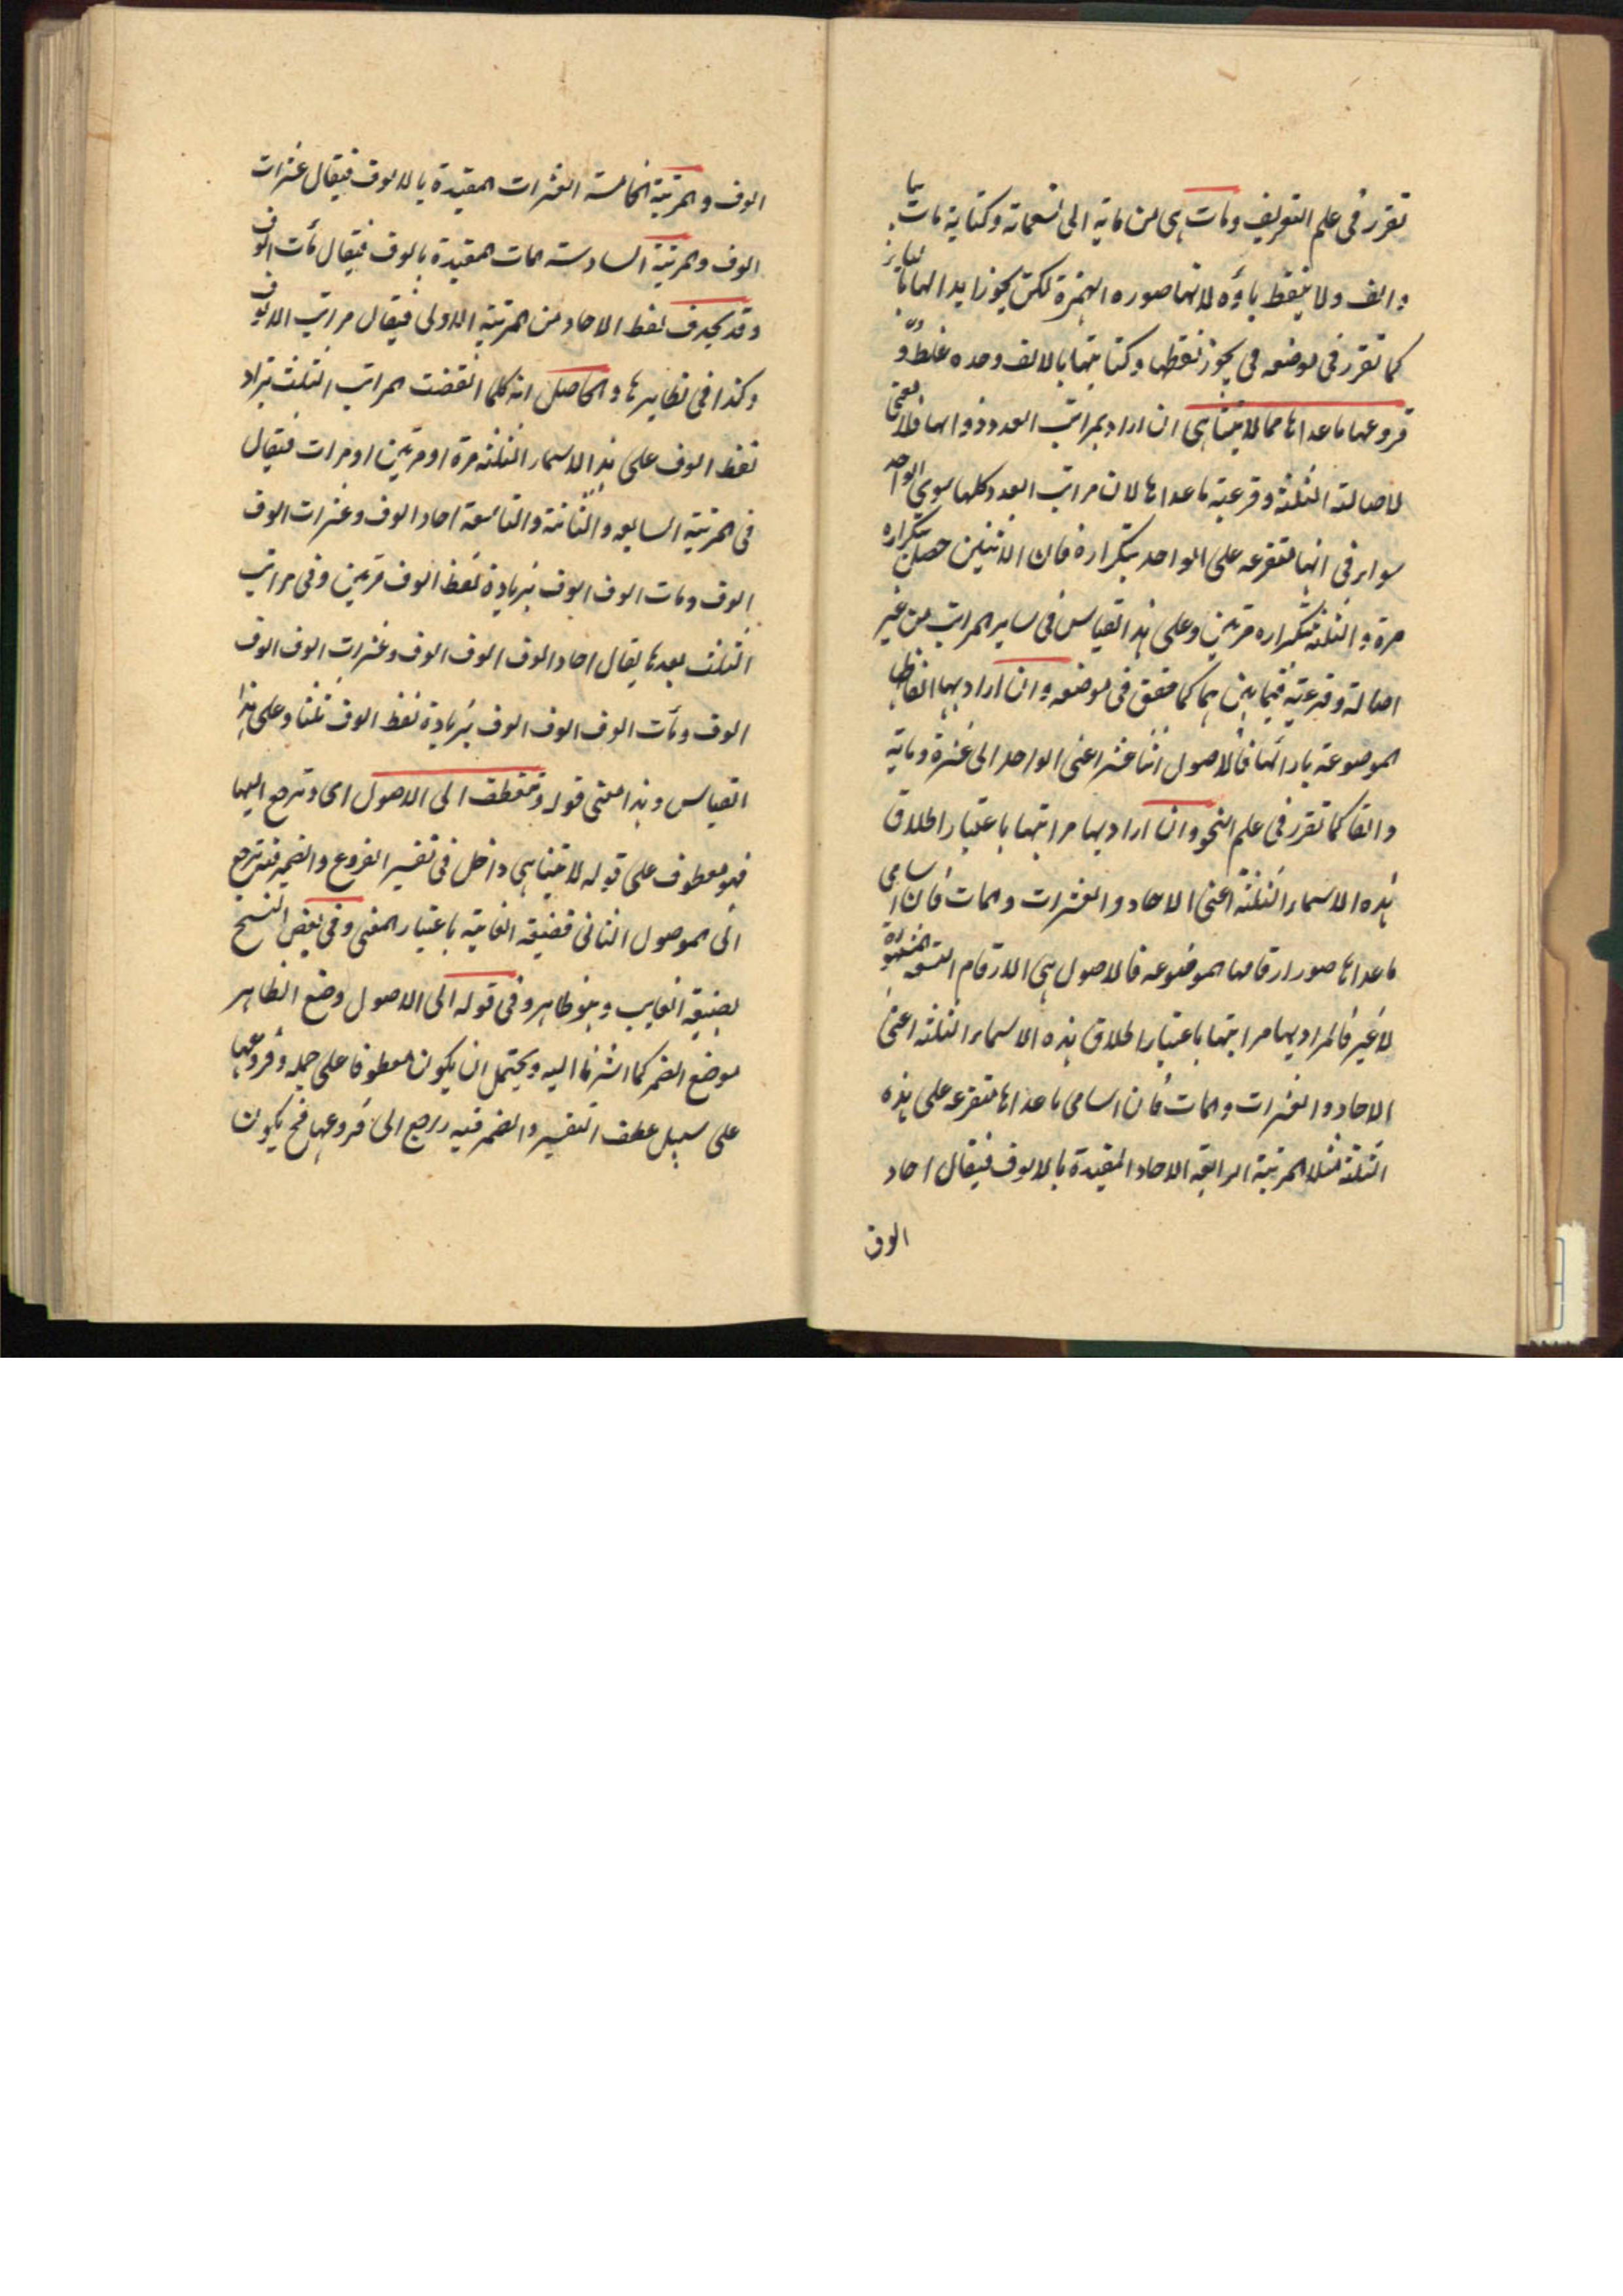 تقرر فى علم التعريف ومات هى من ماية الى تسعماته وكتابة مات بيا
والف ولا ينقط ياؤه لانها صوره الهمزة لكن يجوز ابدالها يا
كما تقرر فى موضعه فى يجوز نقطها وكتابتها بالالف وحده غلط و
فروعها ماعداها مما لا يتناهى ان اراد بمراتب العدد ذواتها فلا معنى
لاصالة الثلثة وفرعية ماعداها لان مراتب العدد كلها سوى الواحد
سواء فى انها متفرعه على الواحد بتكراره فان الاثنين حصل بتكراره
مرة والثلثة بتكراره مرتين وعلى هذا القياس فى ساير المراتب من غير
اصالة وفرعية فيما بينهما كما حقق فى موضعه وان اراد بها الفاظها
الموضوعة بازائها فالاصول اثنا عشر اعنى الواحد الى عشرة وماية
والفا كما تقرر فى علم النحو وان اراد بها مراتبها باعتبار اطلاق
هذه الاسماء الثلثة اعنى الاحاد والعشرات والمات فان اسامى
ماعداها صور ارقامها الموضوعه فالاصول هى الارقام التسعه المشهورة
لا غير فالمراد بها مراتبها باعتبار اطلاق هذه الاسماء الثلثة اعنى
الاحاد والعشرات والمات فان اسامى ماعداها متفرعه على هذه
الثلثة مثلا المرتبة الرابعة الاحاد المقيدة بالالوف فيقال احاد
الوف
الوف والمرتبة الخامسة العشرات المقيدة بالالوف فيقال عشرات
الوف والمرتبة السادسة المات المقيدة بالوف فيقال مأت الوف
وقد يحذف لفظ الاحاد من المرتبة الاولى فيقال مراتب الالوف
وكذا فى نظايرها والحاصل انه كلما انقضت المراتب الثلث تزاد
لفظ الوف على هذا الاسماء الثلثة مرة او مرتين او مرات فيقال
فى المرتبة السابعه والثامنة والتاسعة احاد الوف وعشرات الوف
الوف ومات الوف الوف بزيادة لفظ الوف مرتين وفى مراتب
الثلث بعدها يقال احاد الوف الوف الوف وعشرات الوف الوف
الوف ومأت الوف الوف الوف بزيادة لفظ الوف ثلثا وعلى هذا
القياس وهذا معنى قوله وتنعطف الى الاصول اى وترجع اليها
فهو معطوف على قوله لا يتناهى داخل فى تفسير الفروع والضمير فيه يرجع
الى الموصول الثانى فصيغة الغايبة باعتبار المعنى وفى بعض النسخ
بصيغة الغايب وهو ظاهر وفى قوله الى الاصول وضع الظاهر
موضع الضمير كما اشرنا اليه ويحتمل ان يكون معطوفا على جمله وفروعها
على سبيل عطف التفسير والضمير فيه راجع الى فروعها فح يكون